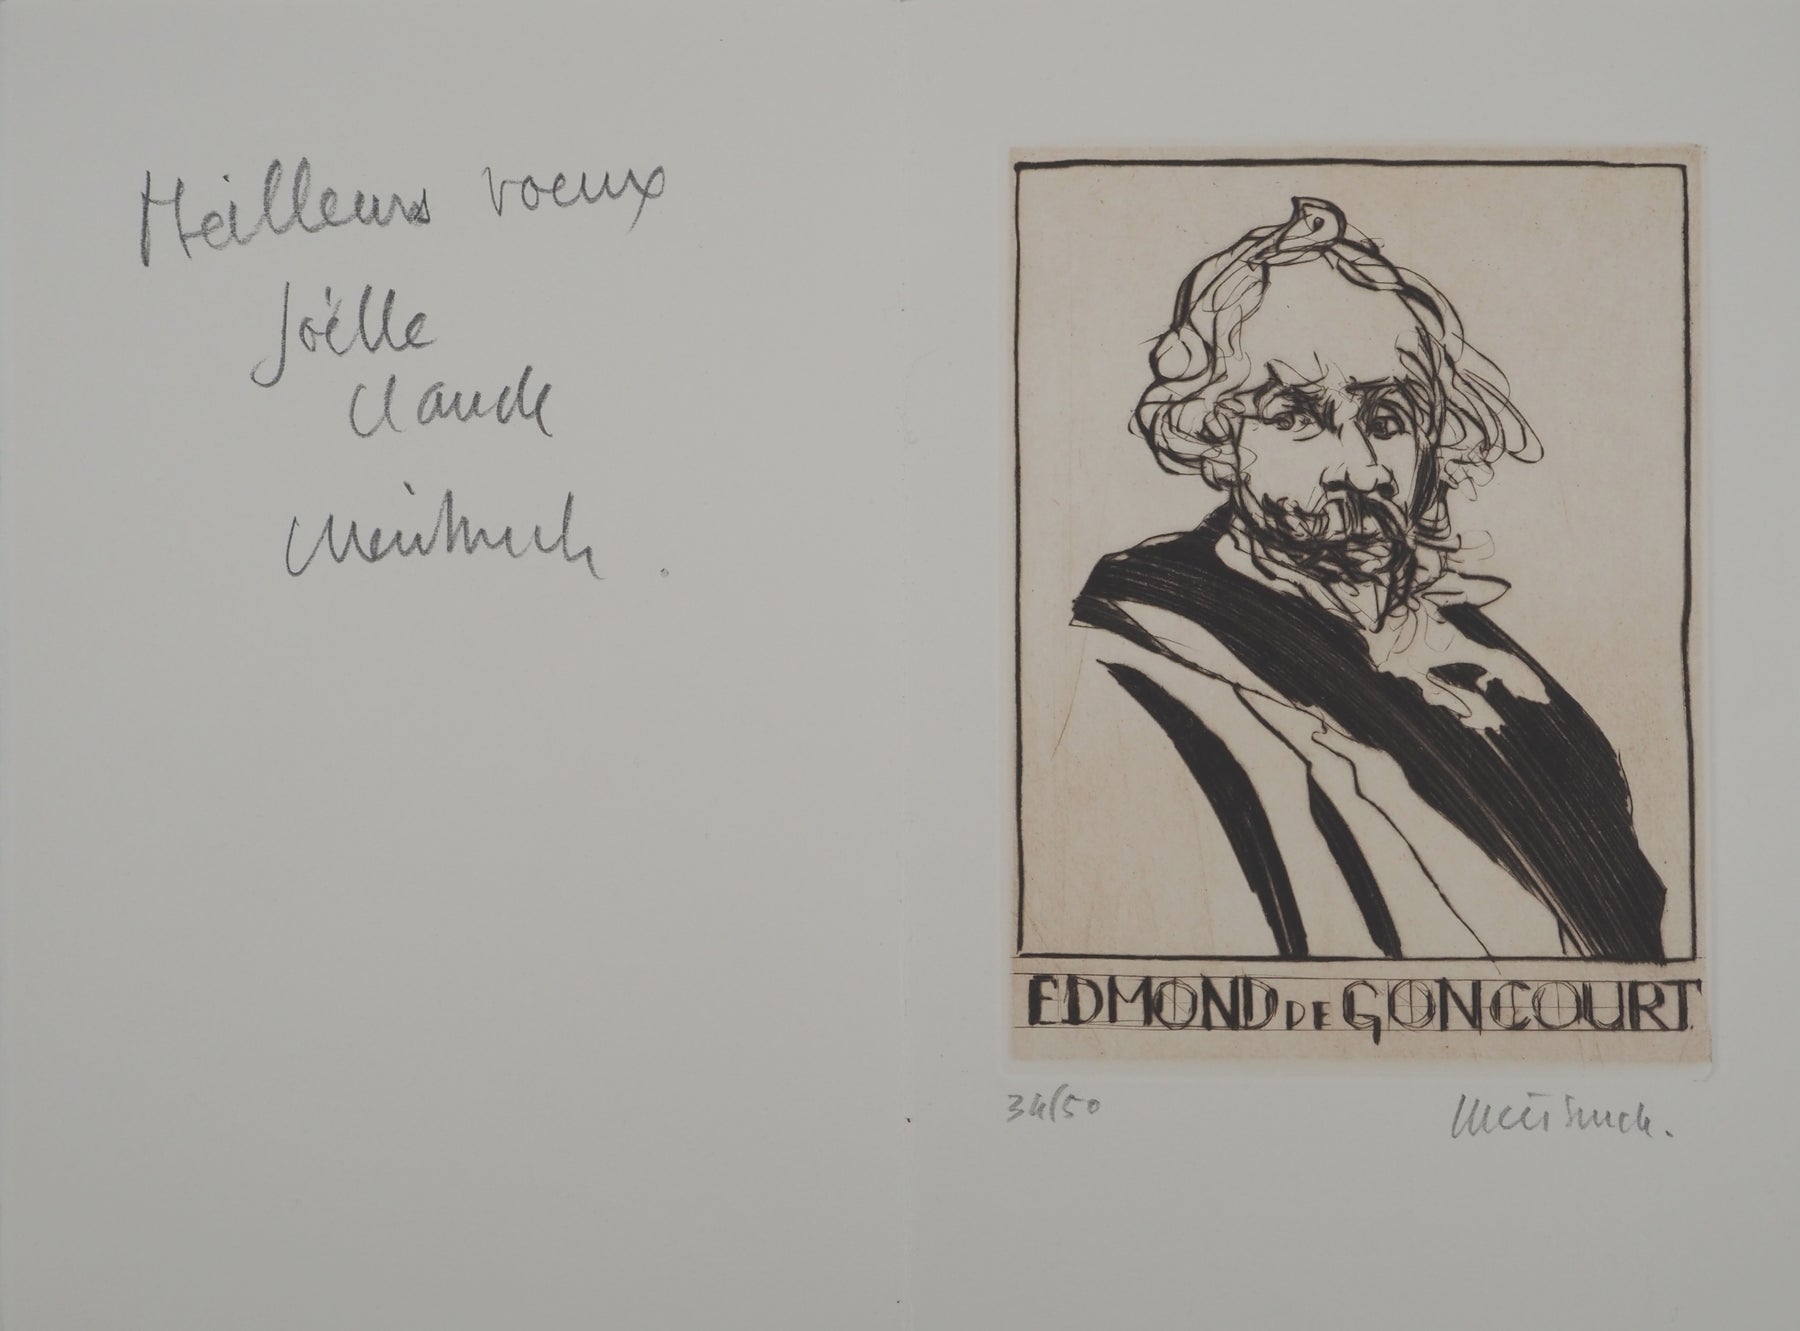 Meilleurs voeux
Joëlle
Claude
Weisbuch.
EDMOND DE GONCOURT
34/50
Weisbuch.